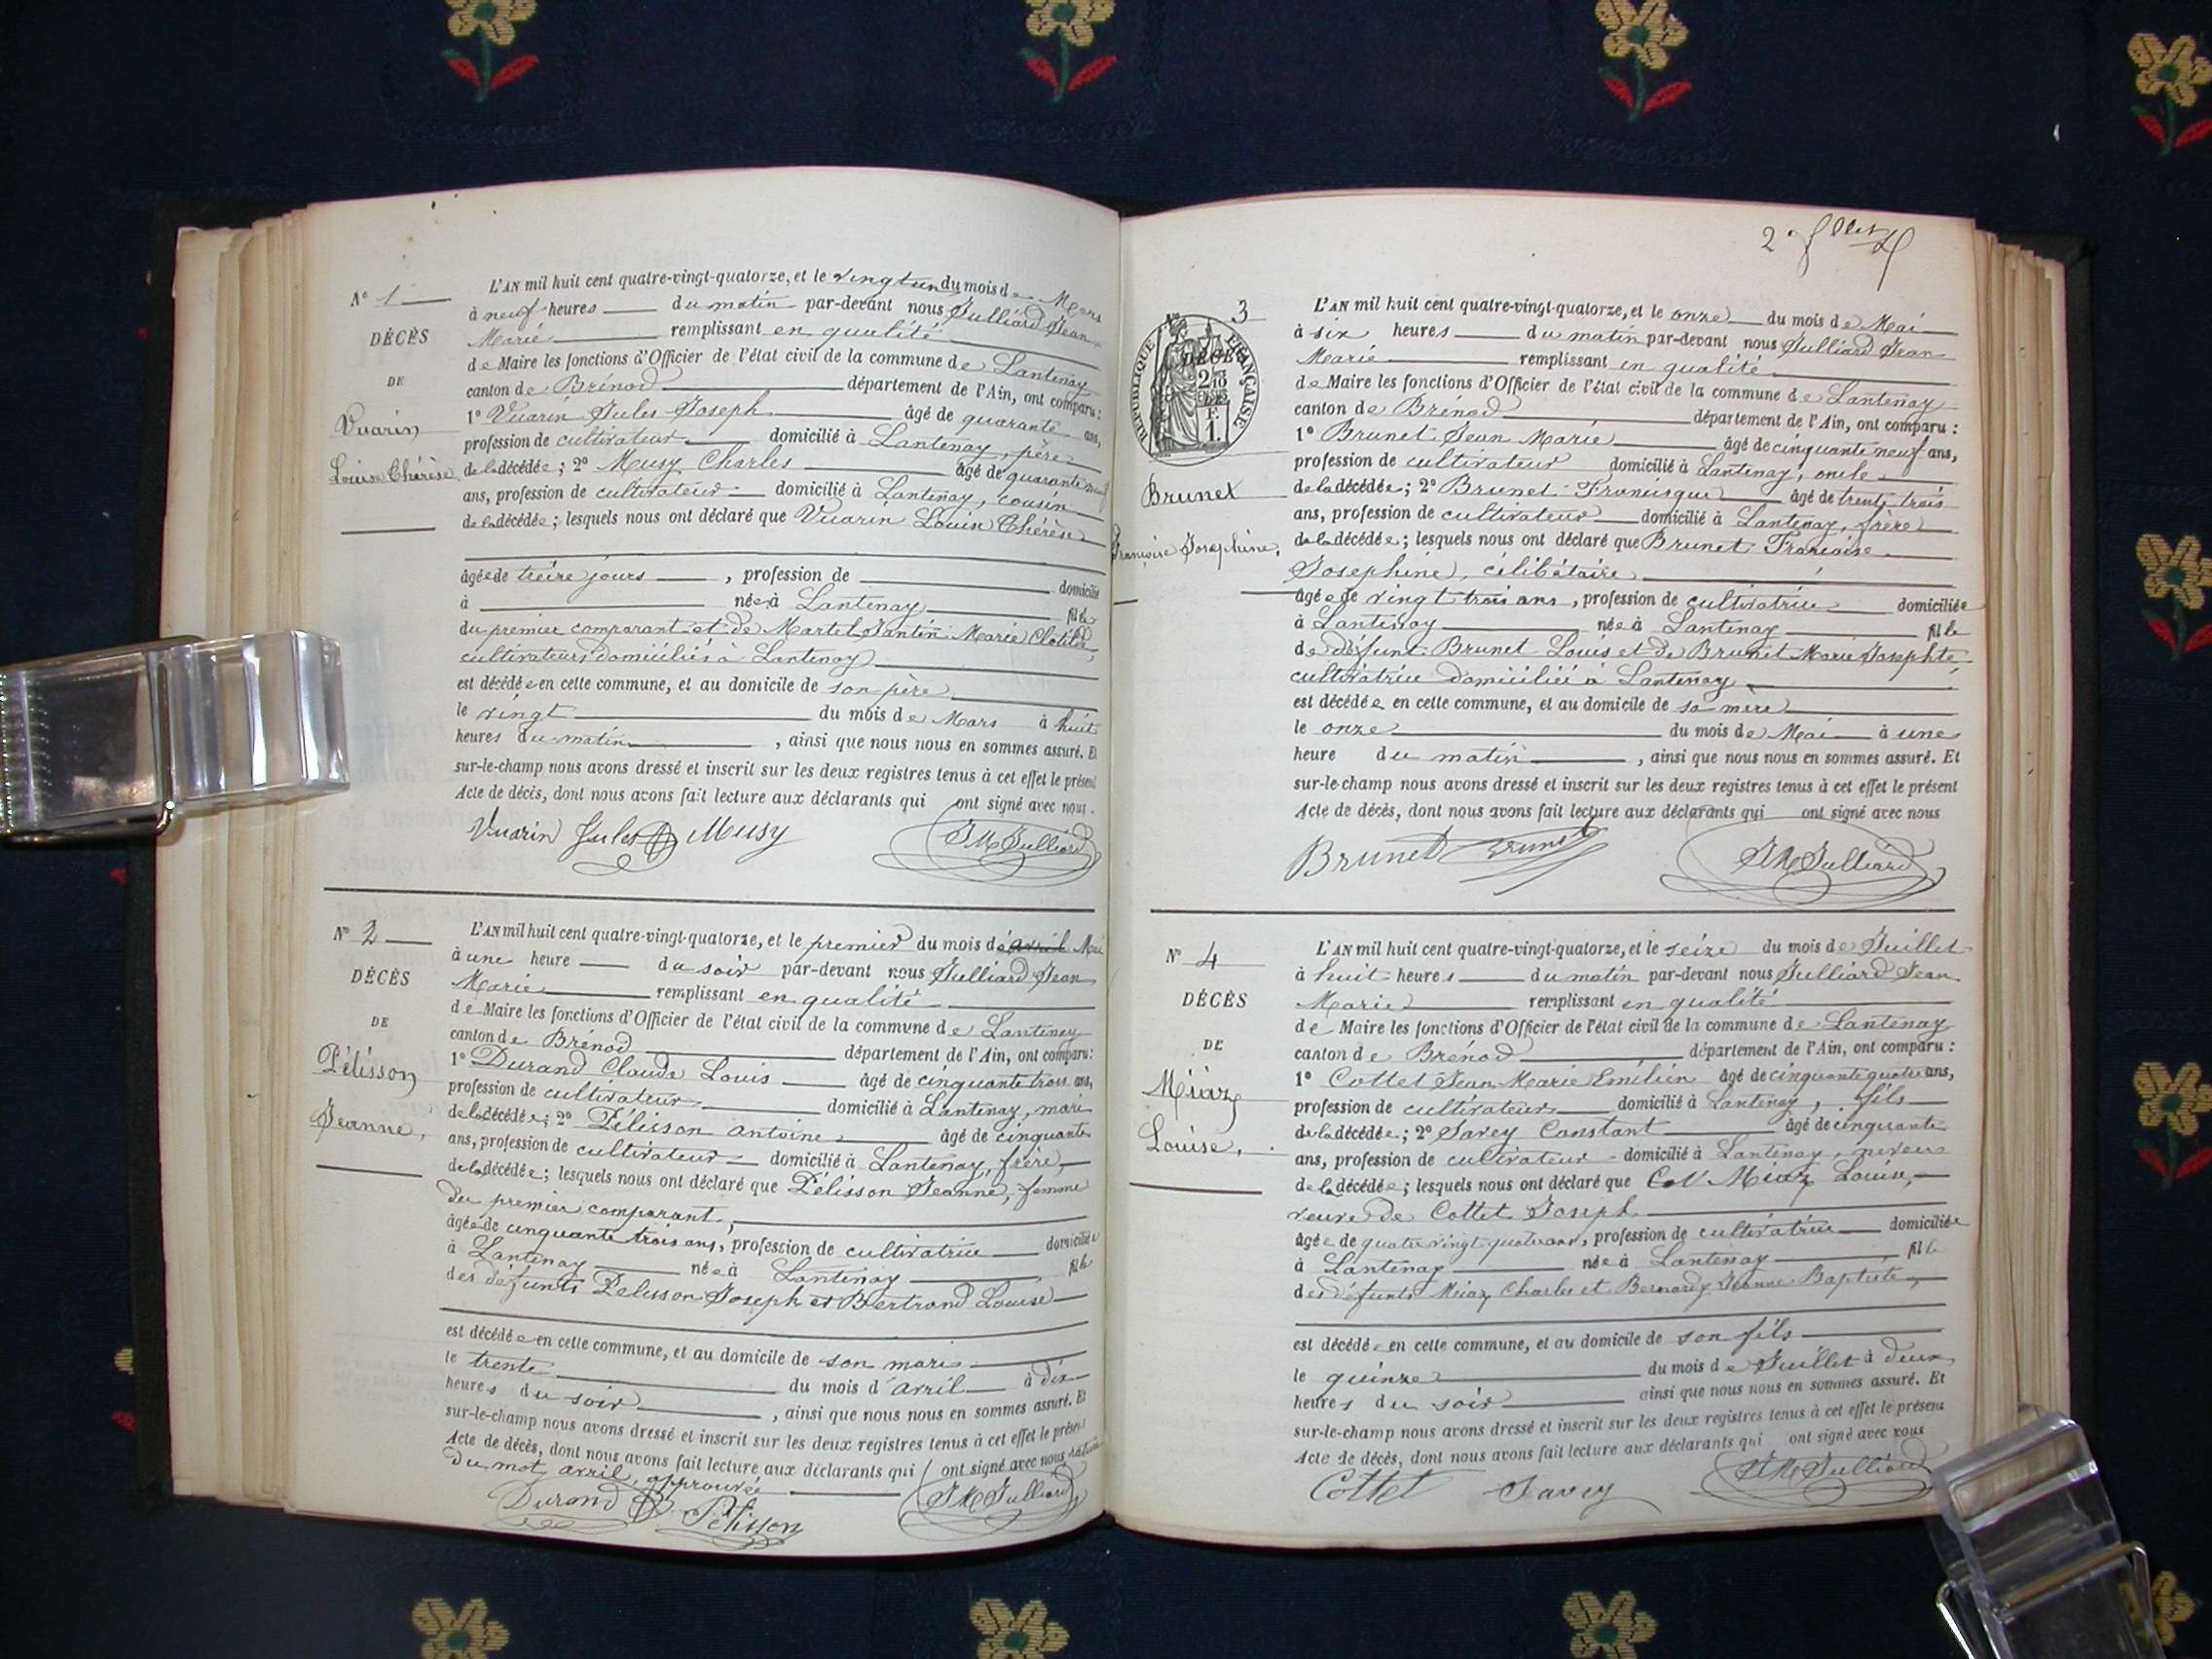 N° 1
DÉCÈS
DE
Vuarin
Louise Thérèse
L'AN mil huit cent quatre-vingt-quatorze, et le vingt un du mois de Mars
à neuf heures du matin par-devant nous Julliard Jean
Marie remplissant en qualité
de Maire les fonctions d'Officier de l'état civil de la commune de Lantenay
canton de Brénod département de l'Ain, ont comparu :
1° Vuarin Jules Joseph âgé de quarante ans,
profession de cultivateur domicilié à Lantenay, père
de la décédée ; 2° Musy Charles âgé de quarante neuf
ans, profession de cultivateur domicilié à Lantenay, cousin
de la décédée ; lesquels nous ont déclaré que Vuarin Louise Thérèse
âgée de treize jours , profession de domicilié
à née à Lantenay fille
du premier comparant et de Martel Jantin Marie Clotilde,
cultivateurs domiciliés à Lantenay
est décédée en cette commune, et au domicile de son père
le vingt du mois de Mars à huit
heures du matin , ainsi que nous nous en sommes assuré. Et
sur-le-champ nous avons dressé et inscrit sur les deux registres tenus à cet effet le présent
Acte de décès, dont nous avons fait lecture aux déclarants qui ont signé avec nous.
Vuarin Jules Musy JM Julliard
N° 2
DÉCÈS
DE
Pélisson
Jeanne,
L'AN mil huit cent quatre-vingt-quatorze, et le premier du mois de avril Mai
à une heure du soir par-devant nous Julliard Jean
Marie remplissant en qualité
de Maire les fonctions d'Officier de l'état civil de la commune de Lantenay
canton de Brénod département de l'Ain, ont comparu :
1° Durand Claude Louis âgé de cinquante trois ans,
profession de cultivateur domicilié à Lantenay, mari
de la décédée ; 2° Pélisson Antoine âgé de cinquante
ans, profession de cultivateur domicilié à Lantenay, frère
de la décédée ; lesquels nous ont déclaré que Pélisson Jeanne, femme
du premier comparant,
âgée de cinquante trois ans, profession de cultivatrice domiciliée
à Lantenay née à Lantenay fille
des défunts Pelisson Joseph et Bertrand Louise
est décédée en cette commune, et au domicile de son mari
le trente du mois d'avril à dix
heures du soir , ainsi que nous nous en sommes assuré. Et
sur-le-champ nous avons dressé et inscrit sur les deux registres tenus à cet effet le présent
Acte de décès, dont nous avons fait lecture aux déclarants qui ont signé avec nous,
du mot avril, approuvée
Durand Pélisson JM Julliard
3
RÉPUBLIQUE FRANÇAISE
DÉCÈS
2 10
F.
1.
Brunet
Françoise Josephine,
L'AN mil huit cent quatre-vingt-quatorze, et le onze du mois de Mai
à six heures du matin par-devant nous Julliard Jean
Marie remplissant en qualité
de Maire les fonctions d'Officier de l'état civil de la commune de Lantenay
canton de Brénod département de l'Ain, ont comparu :
1° Brunet Jean Marie âgé de cinquante neuf ans,
profession de cultivateur domicilié à Lantenay, oncle
de la décédée ; 2° Brunet Francisque âgé de trente trois
ans, profession de cultivateur domicilié à Lantenay, frère
de la décédée ; lesquels nous ont déclaré que Brunet Françoise
Josephine, célibataire
âgée de vingt trois ans , profession de cultivatrice domiciliée
à Lantenay née à Lantenay fille
de défunt Brunet Louis et de Brunet Marie Josephte
cultivatrice domiciliée à Lantenay
est décédée en cette commune, et au domicile de sa mère
le onze du mois de Mai à une
heure du matin , ainsi que nous nous en sommes assuré. Et
sur-le-champ nous avons dressé et inscrit sur les deux registres tenus à cet effet le présent
Acte de décès, dont nous avons fait lecture aux déclarants qui ont signé avec nous
Brunet Brunet JM Julliard
N° 4
DÉCÈS
DE
Miaz
Louise,
L'AN mil huit cent quatre-vingt-quatorze, et le seize du mois de Juillet
à huit heures du matin par-devant nous Julliard Jean
Marie remplissant en qualité
de Maire les fonctions d'Officier de l'état civil de la commune de Lantenay
canton de Brénod département de l'Ain, ont comparu :
1° Cottet Jean Marie Emilien âgé de cinquante quatre ans,
profession de cultivateur domicilié à Lantenay, fils
de la décédée ; 2° Savey Constant âgé de cinquante
ans, profession de cultivateur domicilié à Lantenay, neveu
de la décédée ; lesquels nous ont déclaré que Miaz Louise,
veuve de Cottet Joseph
âgée de quatre vingt quatre ans, profession de cultivatrice domiciliée
à Lantenay née à Lantenay fille
des défunts Miaz Charles et Bernardy Jeanne Baptiste,
est décédée en cette commune, et au domicile de son fils
le quinze du mois de Juillet à deux
heures du soir ainsi que nous nous en sommes assuré. Et
sur-le-champ nous avons dressé et inscrit sur les deux registres tenus à cet effet le présent
Acte de décès, dont nous avons fait lecture aux déclarants qui ont signé avec nous
Cottet Savey JM Julliard